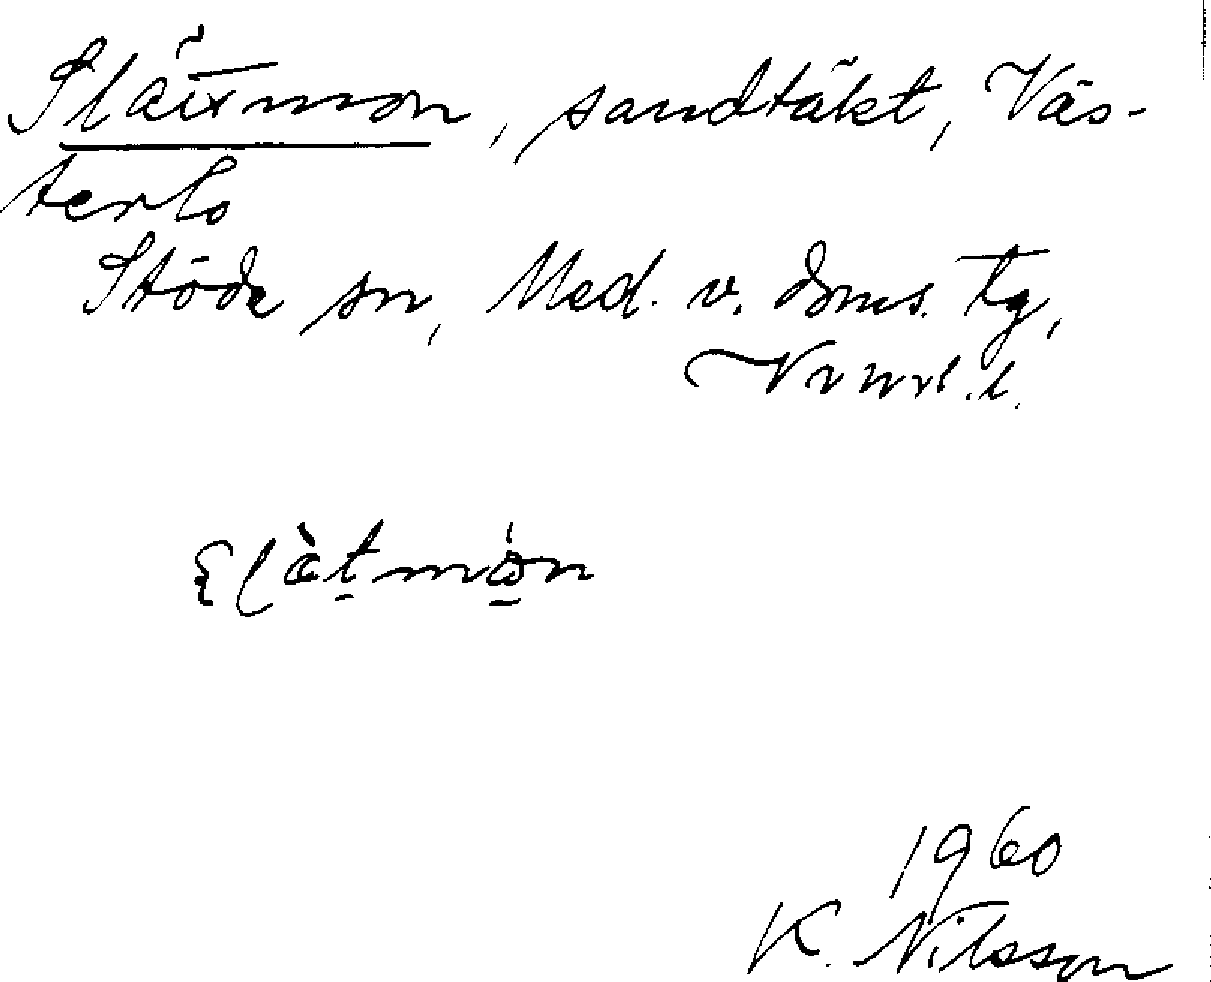 Slättmon, sandtäkt, Väs-
terlo
Stöde sn, Med. v. doms. tg,
Vrnrl. l.
Slàtmòn
1960
K. Nilsson